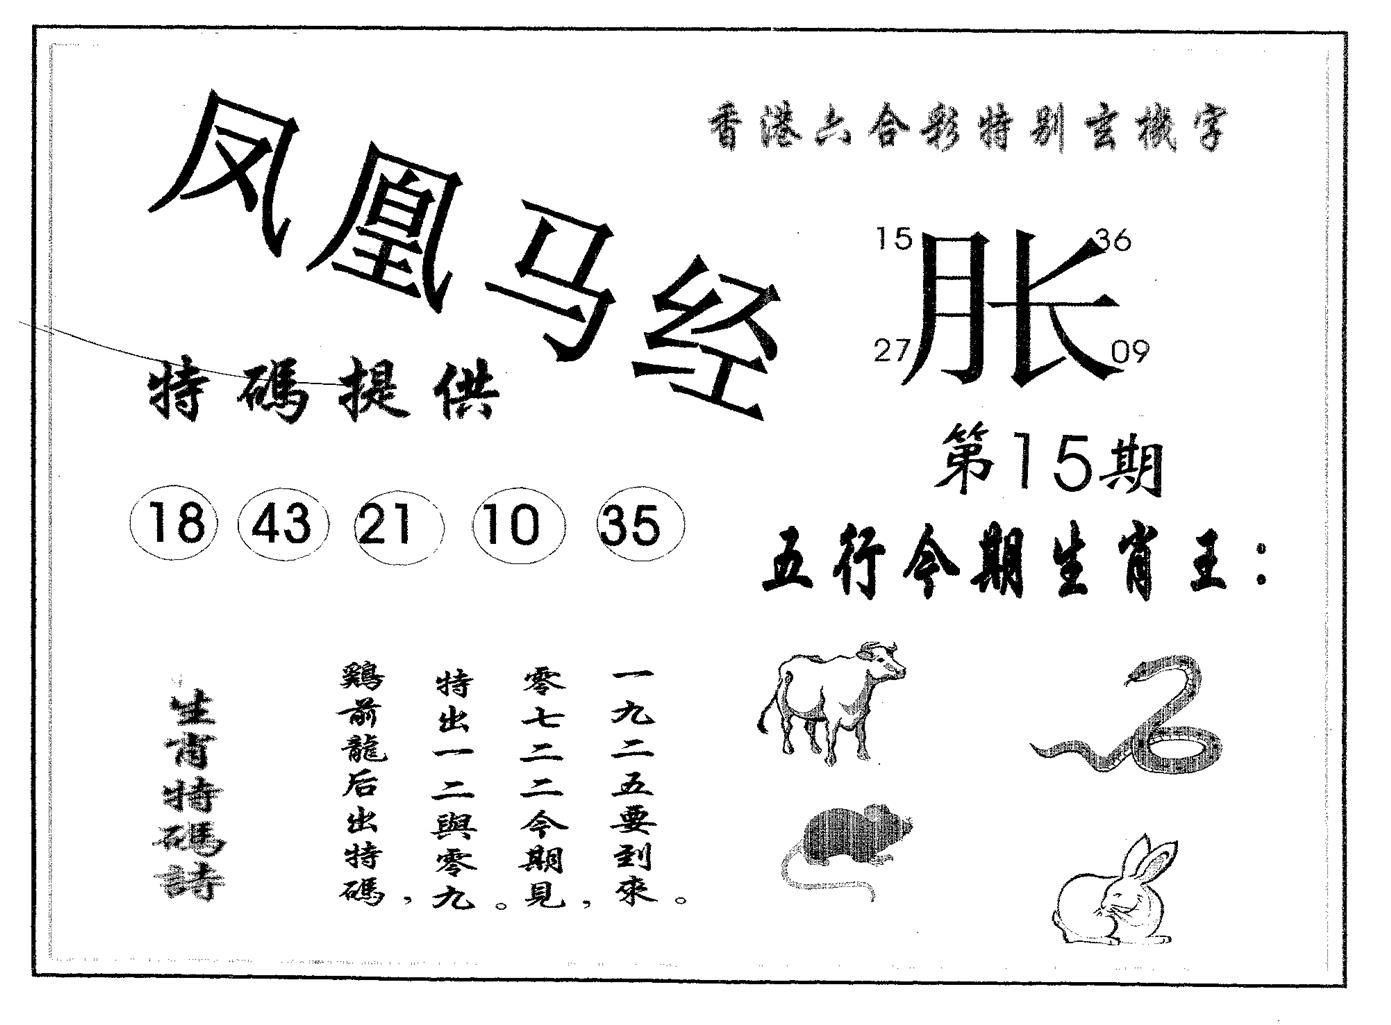 凤凰马经
香港六合彩特别玄機字
15 36
胀
27 09
第15期
特碼提供
18 43 21 10 35
五行今期生肖王：
生肖特碼詩
鷄前龍后出特碼，
特出一二與零九。
零七二二今期見，
一九二五要到來。